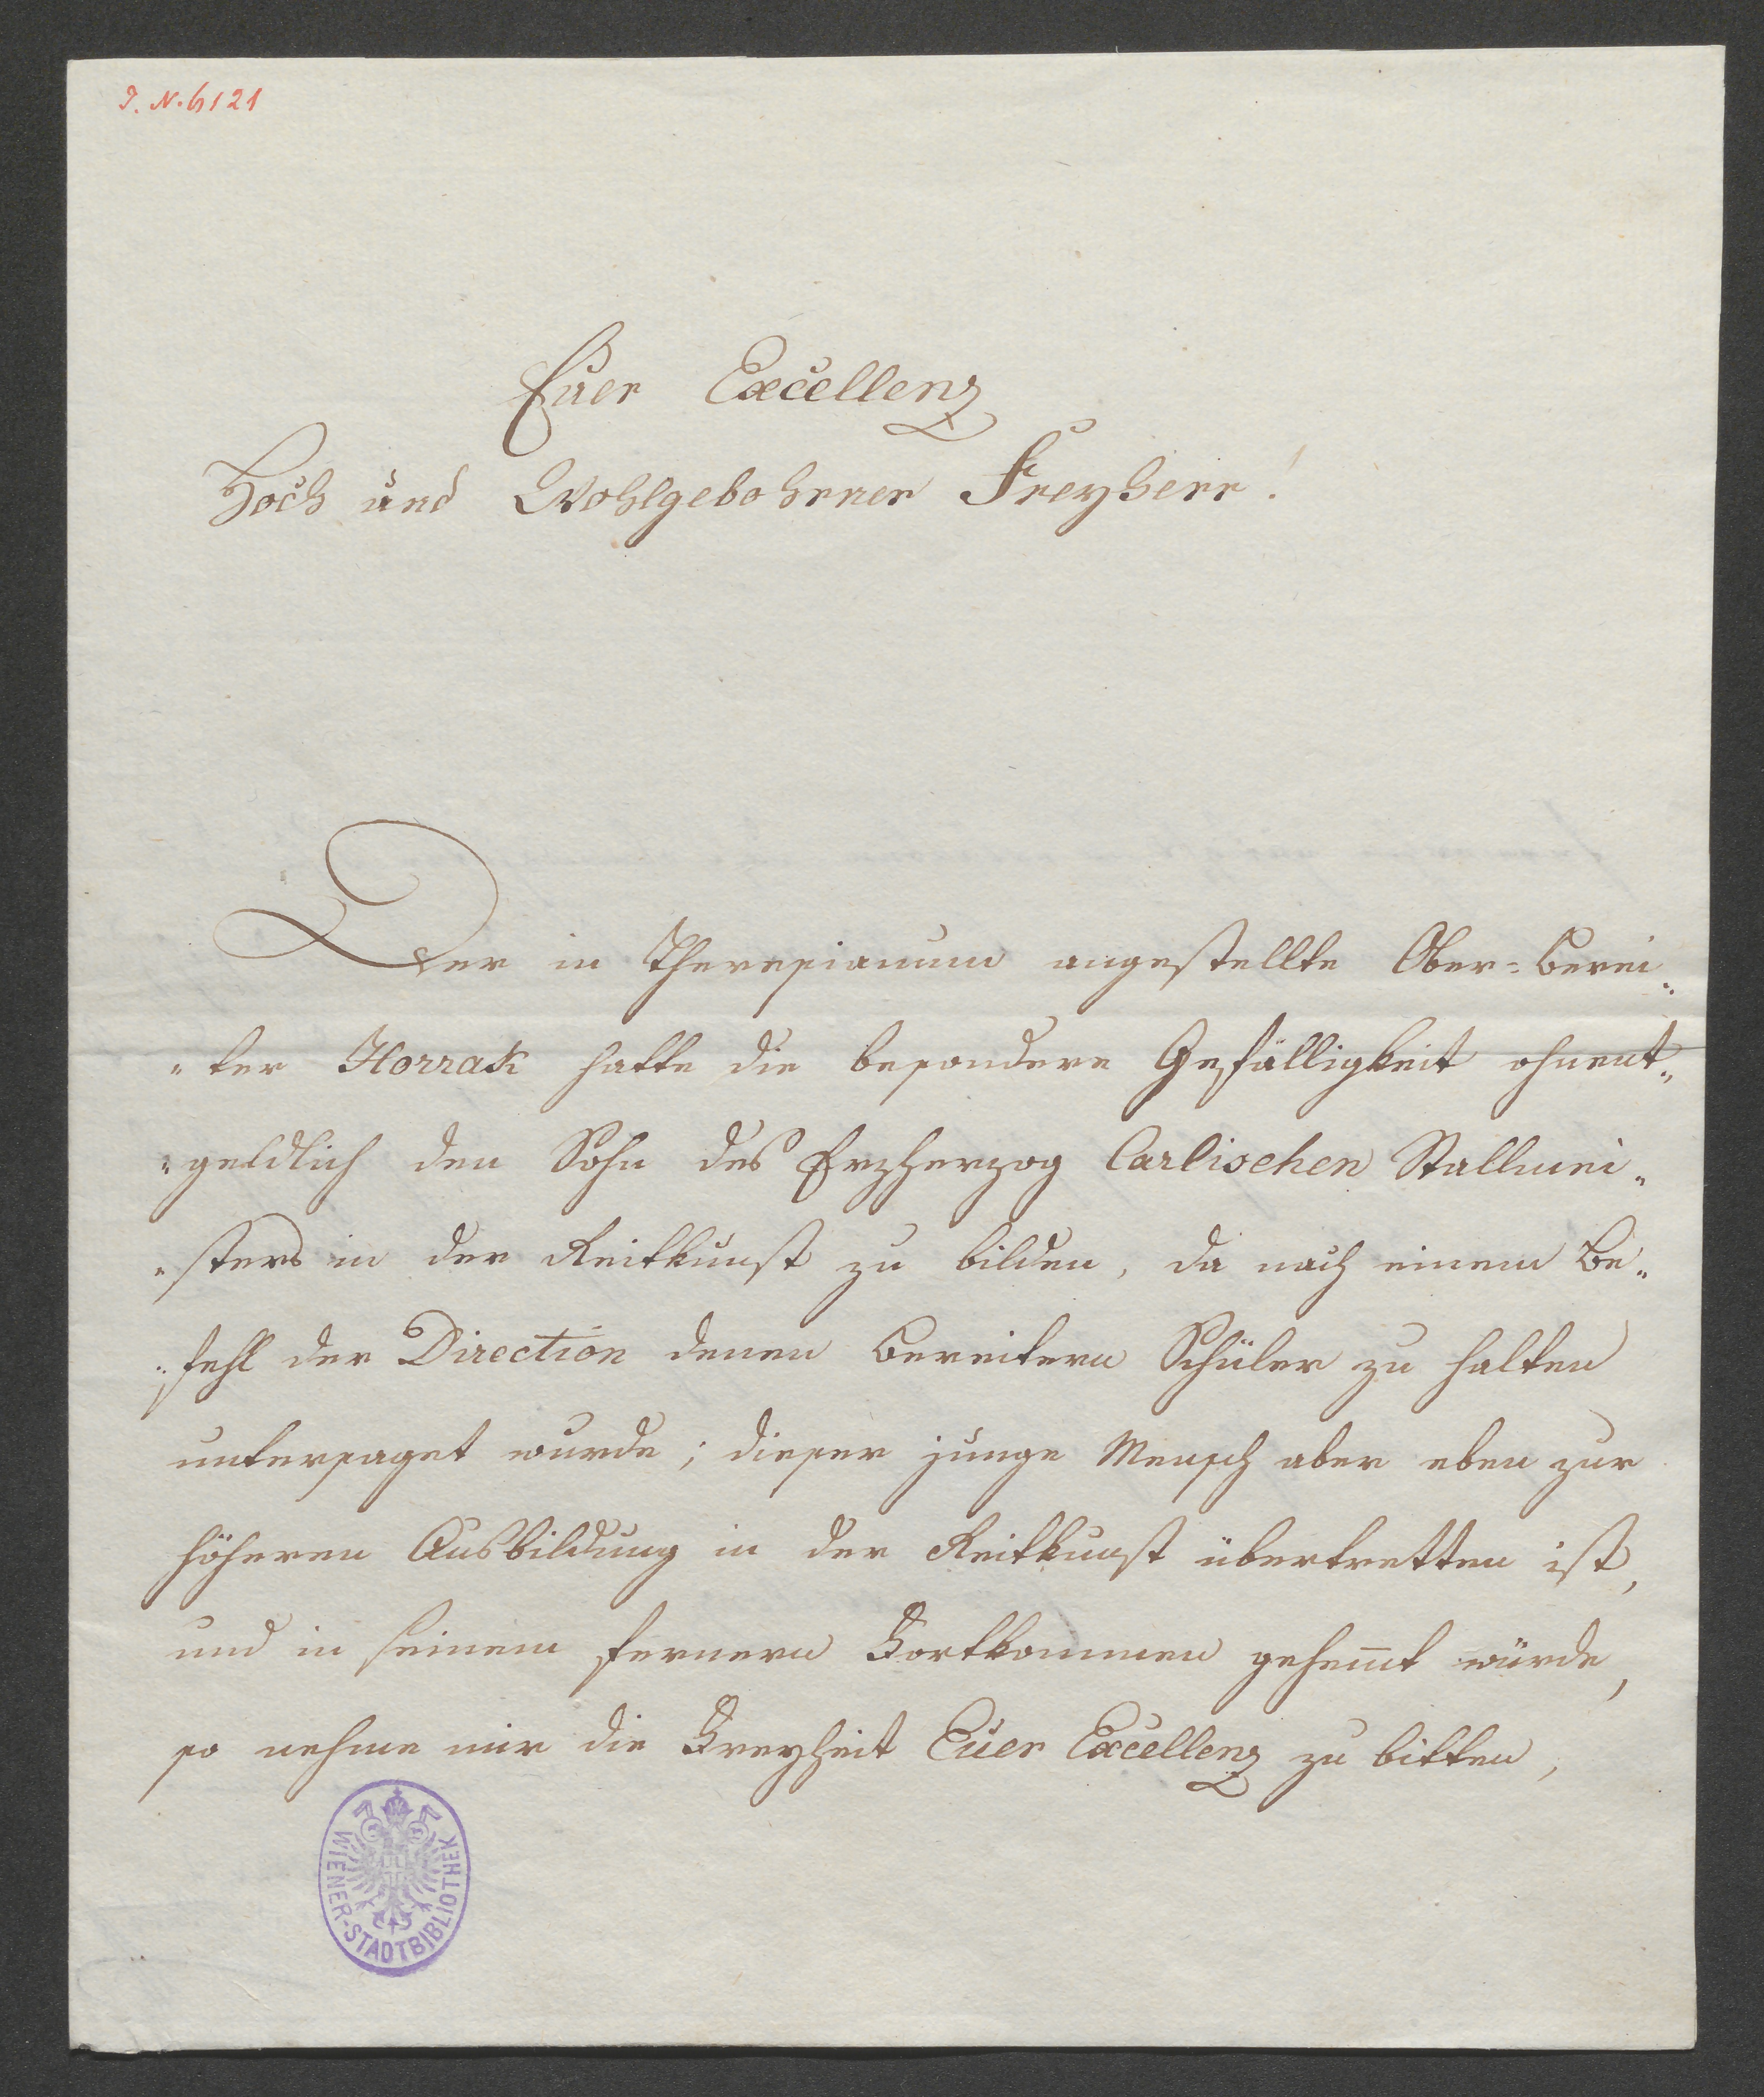 J. N. 6121
Euer Excellenz
Hoch und Wohlgebohrner Freyherr!
Der in Theresianum angestellte Ober=Berei„
„ter Horrak hatte die besondere Gefälligkeit ohnent„
„geldlich den Sohn des Erzherzog Carlischen Stallmei„
„sters in der Reitkunst zu bilden, da nach einem Be„
„fehl der Direction denen Bereitern Schüler zu halten
untersaget wurde; dieser junge Mensch aber eben zur
höheren Ausbildung in der Reitkunst übertretten ist,
und in seinem fernern Fortkommen gehem̅t würde,
so nehme mir die Freyheit Euer Excellenz zu bitten,
WIENER-STADTBIBLIOTHEK